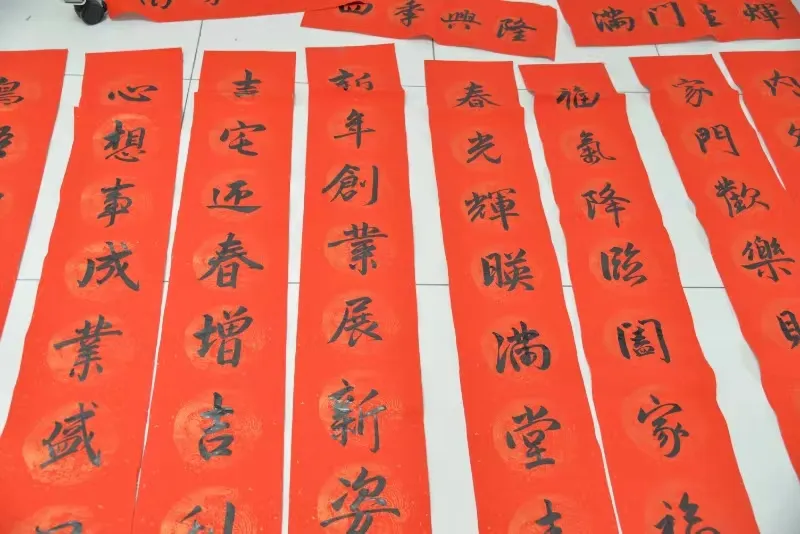 四季興隆
满门生輝
心想事成業盛
吉宅迎春增吉利
新年創業展新姿
春光輝暎满堂吉
福氣降臨闔家福
家門歡樂財
内